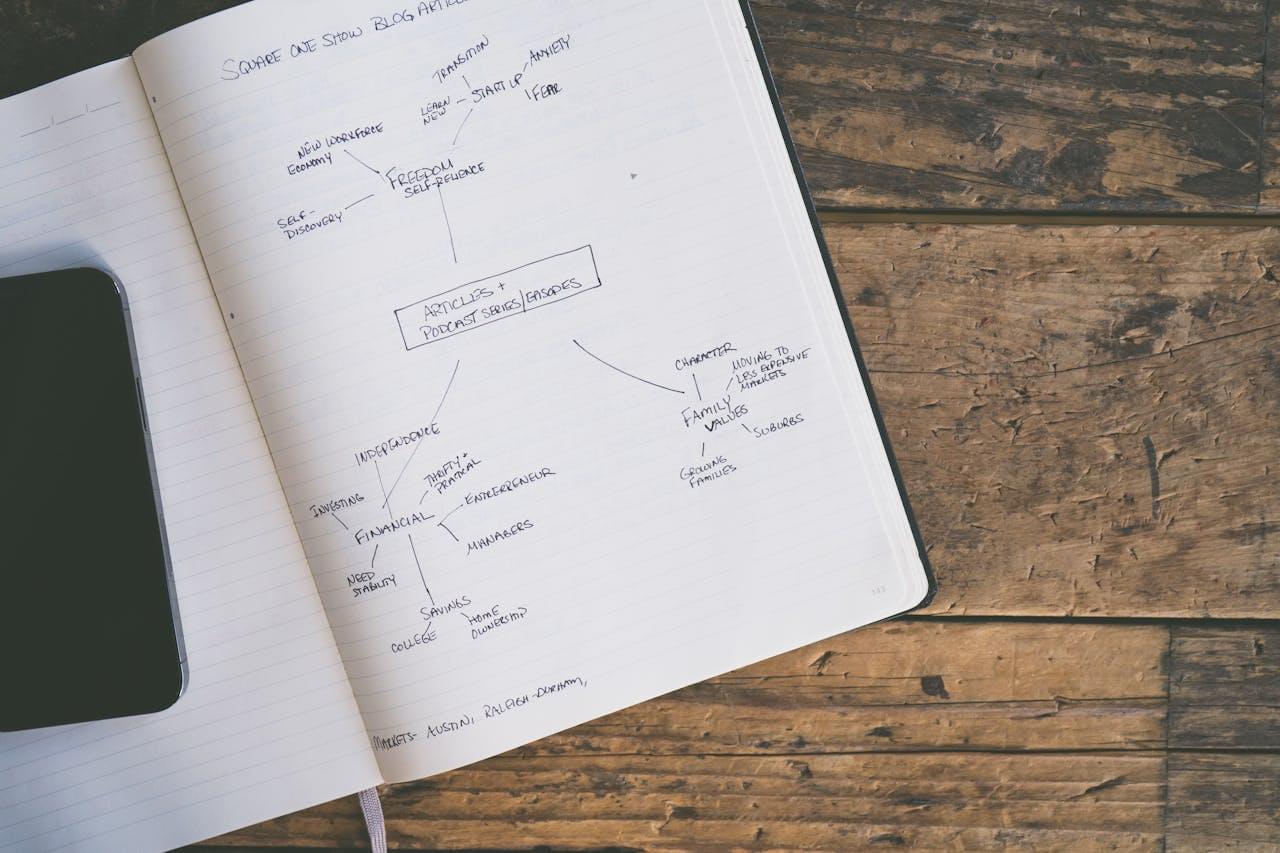 SQUARE ONE SHOW BLOG ARTICL
TRANSITION
ANXIETY
LEARN
NEW
START UP
FEAR
NEW WORKFORCE
ECONOMY
FREEDOM
SELF-RELIENCE
SELF-
DISCOVERY
ARTICLES +
PODCAST SERIES/EPISODES
CHARACTER
MOVING TO
LESS EXPENSIVE
MARKETS
FAMILY
VALUES
SUBURBS
GROWING
FAMILIES
INDEPENDENCE
THRIFTY +
PRATICAL
INVESTING
ENTREPRENEUR
FINANCIAL
MANAGERS
NEED
STABILITY
SAVINGS
HOME
OWNERSHIP
COLLEGE
MARKETS- AUSTIN, RALEIGH-DURHAM,